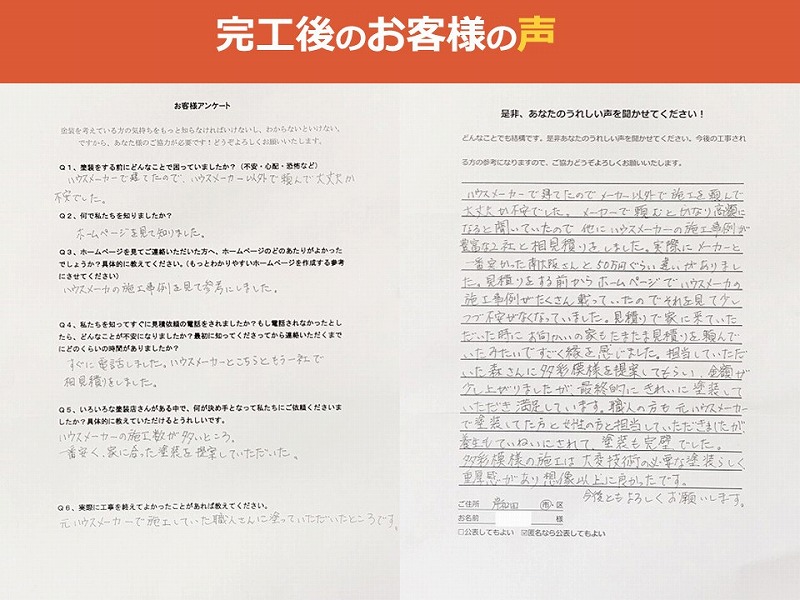 完工後のお客様の声
お客様アンケート
塗装を考えている方の気持ちをもっと知らなければいけないし、わからないといけない。
ですから、あなた様のご協力が必要です！どうぞよろしくお願いいたします。
Q１、塗装をする前にどんなことで困っていましたか？（不安・心配・恐怖など）
ハウスメーカーで建てたので、ハウスメーカー以外で頼んで大丈夫か
不安でした。
Q２、何で私たちを知りましたか？
ホームページを見て知りました。
Q３、ホームページを見てご連絡いただいた方へ、ホームページのどのあたりがよかった
でしょうか？具体的に教えてください。（もっとわかりやすいホームページを作成する参考
にさせてください）
ハウスメーカの施工事例を見て参考にしました。
Q４、私たちを知ってすぐに見積依頼の電話をされましたか？もし電話されなかったとし
たら、どんなことが不安になりましたか？最初に知ってくださってから連絡いただくまで
にどのくらいの時間がありましたか？
すぐに電話しました。ハウスメーカーとこちらともう一社で
相見積をしました。
Q５、いろいろな塗装店さんがある中で、何が決め手となって私たちにご依頼くださいま
したか？具体的に教えていただけるとうれしいです。
ハウスメーカーの施工数が多いところ、
一番安く、家に合った塗装を提案していただいた。
Q６、実際に工事を終えてよかったことがあれば教えてください。
元ハウスメーカーで施工していた職人さんに塗っていただいたところです。
是非、あなたのうれしい声を聞かせてください！
どんなことでも結構です。是非あなたのうれしい声を聞かせてください。今後の工事され
る方の参考になりますので、ご協力どうぞよろしくお願いいたします。
ハウスメーカーで建てたのでメーカー以外で施工を頼んで
大丈夫か不安でした。メーカーで頼むとかなり高額に
なると聞いていたので他にハウスメーカーの施工事例が
豊富な2社と相見積りをしました。実際にメーカーと
一番安かった南大阪さんと50万円ぐらい違いがありまし
た。見積りをする前からホームページでハウスメーカの
施工事例がたくさん載っていたのでそれを見て少し
づつ不安がなくなっていました。見積りで家に来ていた
だいた時にお向かいの家もたまたま見積りを頼んで
いたみたいですごく縁を感じました。担当していただ
いた森さんに多彩模様を提案してもらい、金額が
少し上がりましたが、最終的にきれいに塗装して
いただき満足しています。職人の方も元ハウスメーカー
で塗装してた方と女性の方と担当していただきましたが、
養生もていねいにされて、塗装も完璧でした。
多彩模様の施工は大変技術の必要な塗装らしく
重厚感があり想像以上に良かったです。
今後ともよろしくお願いします。
ご住所 岸和田 市・区
お名前 様
□公表してもよい ☑匿名なら公表してもよい